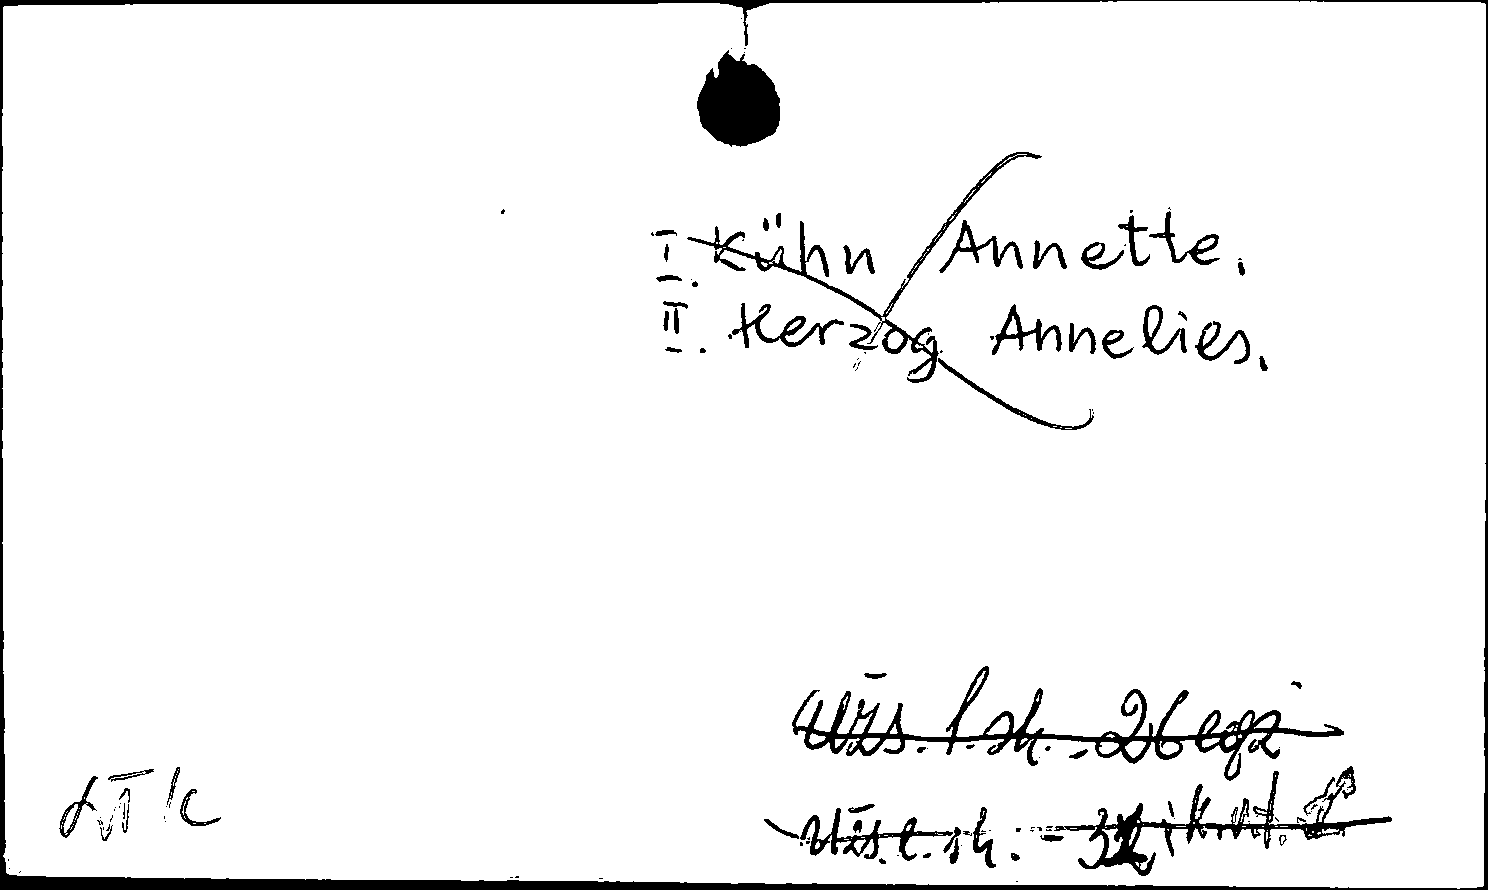 I. Kühn Annette.
II. Herzog Annelies.
Užs. l. sk. - 26 egz
Užs. l. sk. - 32